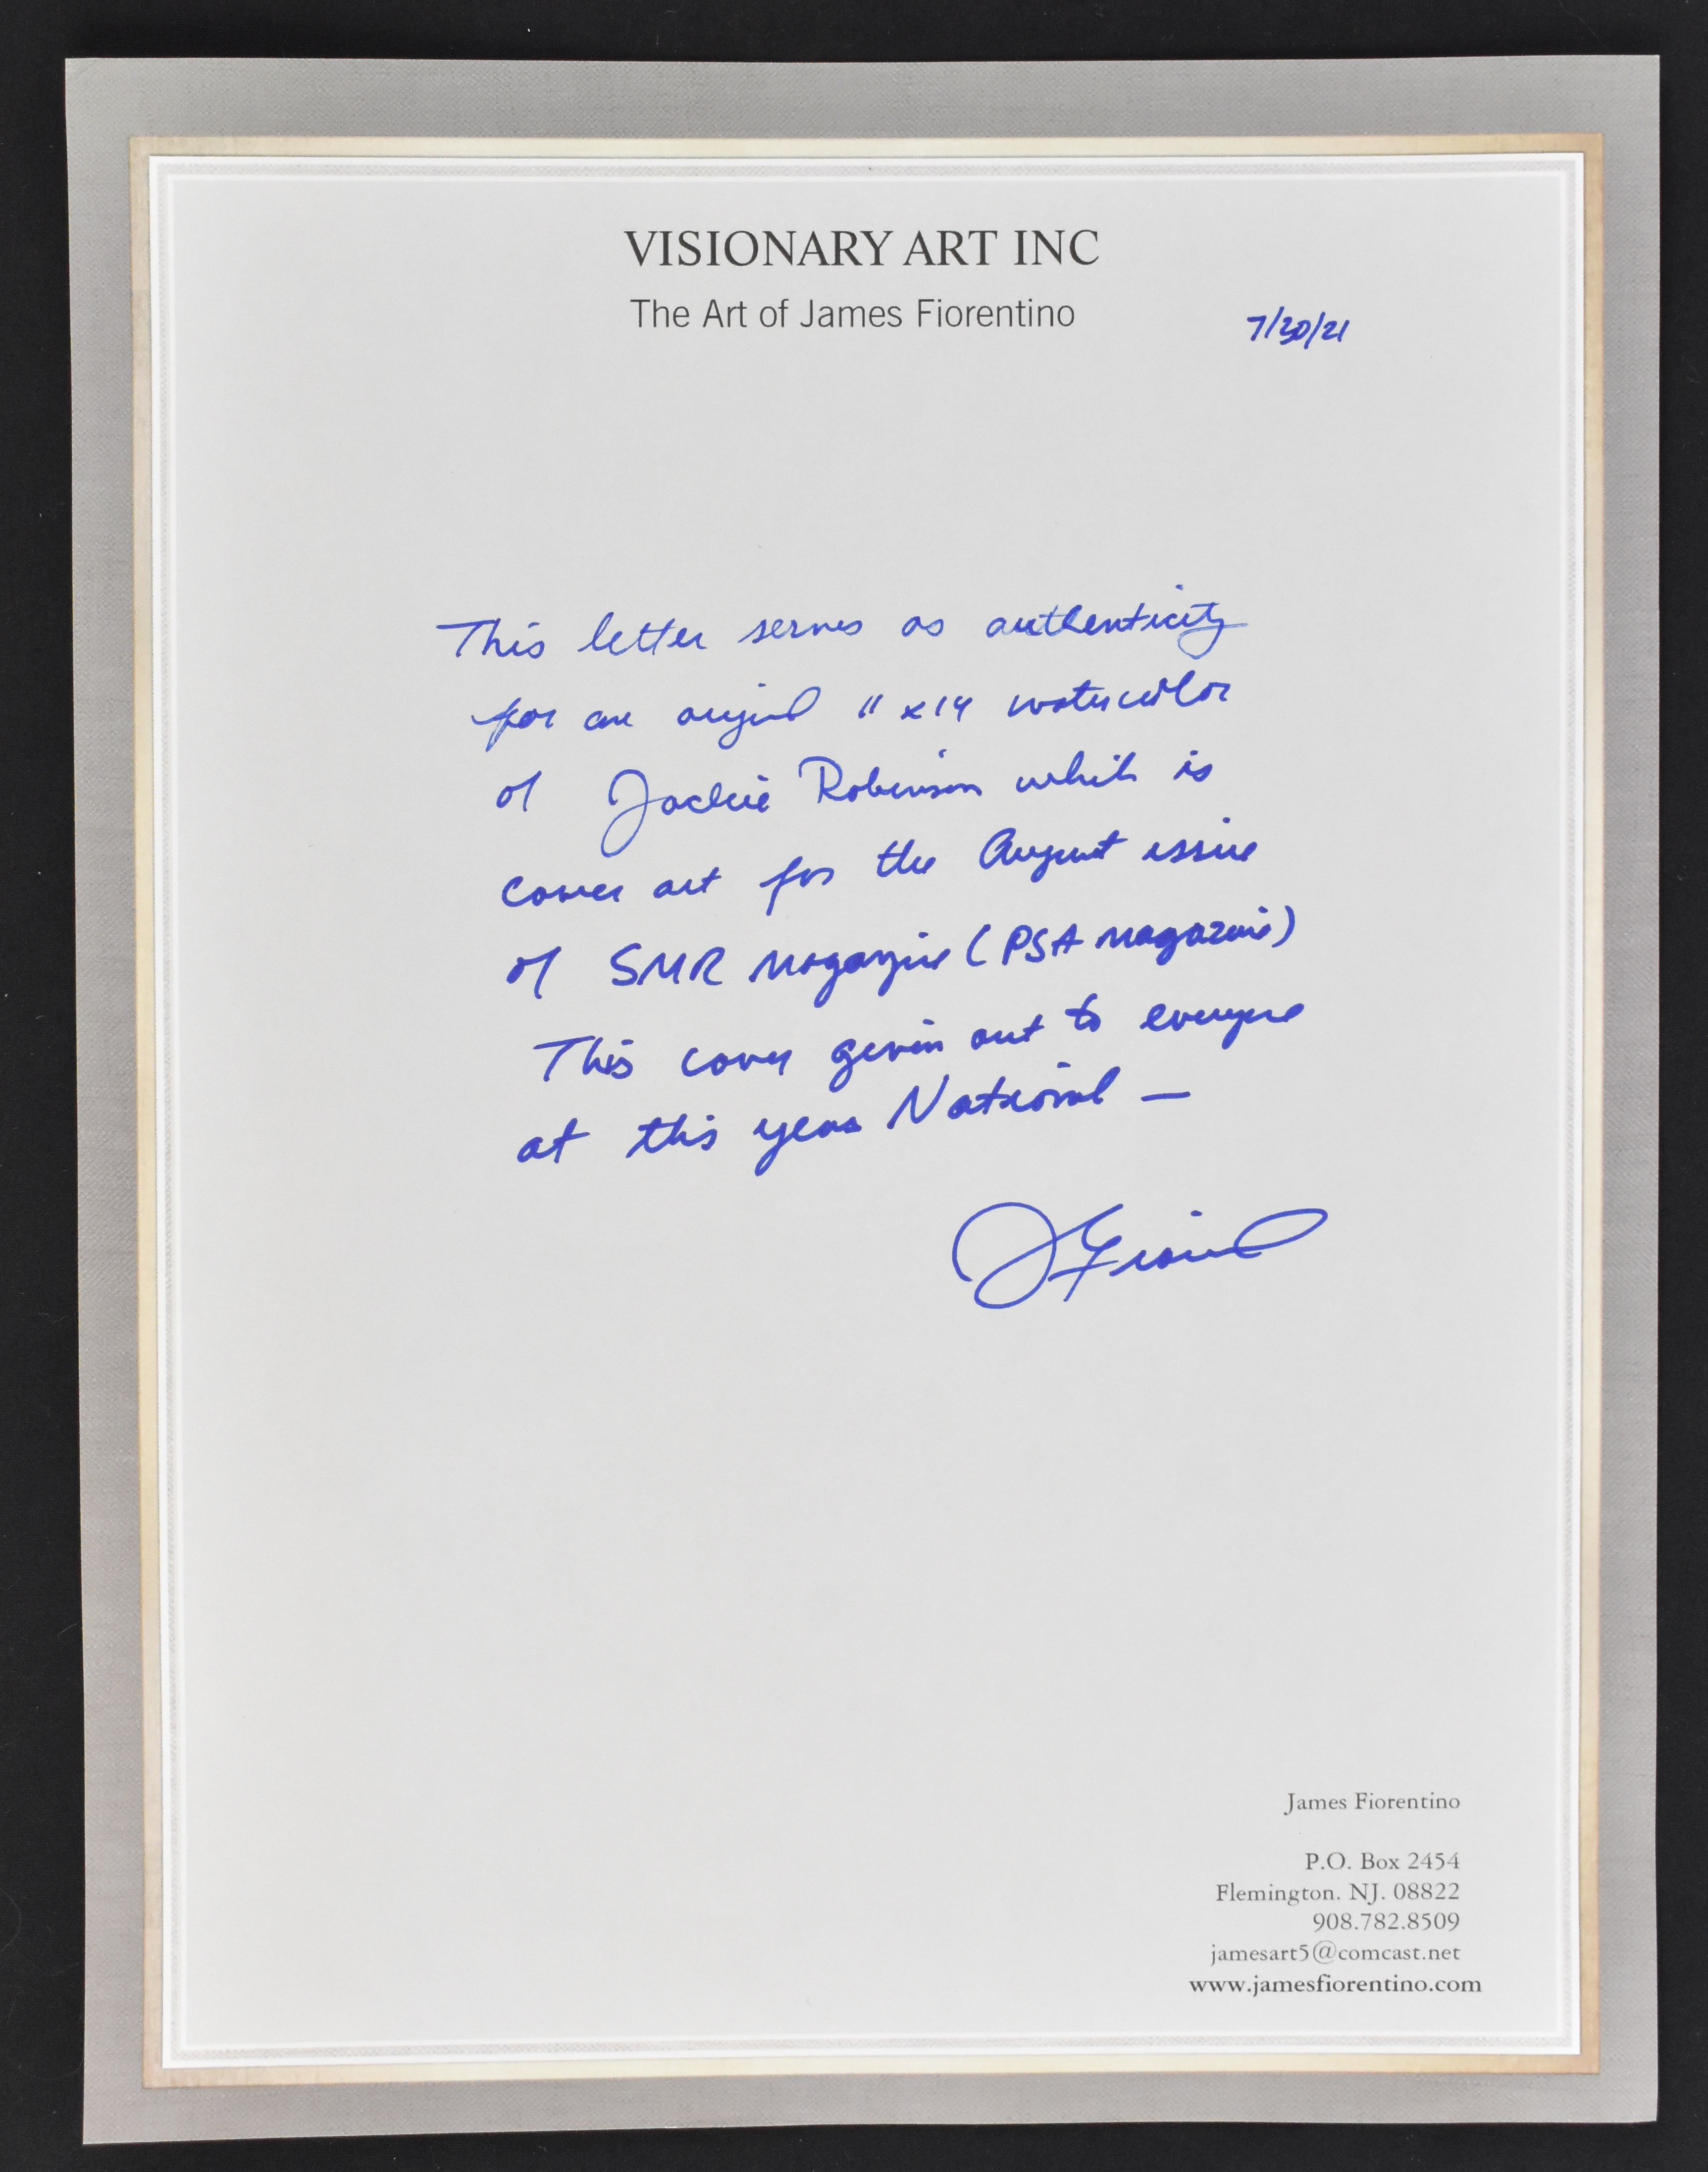 VISIONARY ART INC
The Art of James Fiorentino
7/30/21
This letter serves as authenticity
for an original 11x14 watercolor
of Jackie Robinson which is
cover art for the August issue
of SMR Magazine (PSA Magazine)
This cover given out to everyone
at this years National —
James Fiorentino
P.O. Box 2454
Flemington. NJ. 08822
908.782.8509
jamesart5@comcast.net
www.jamesfiorentino.com